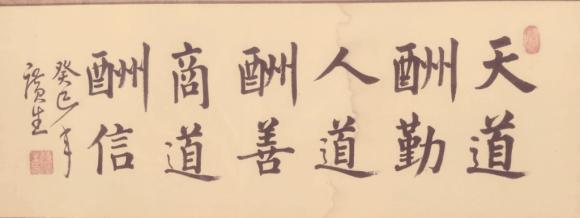 天道
酬勤
人道
酬善
商道
酬信
癸巳年